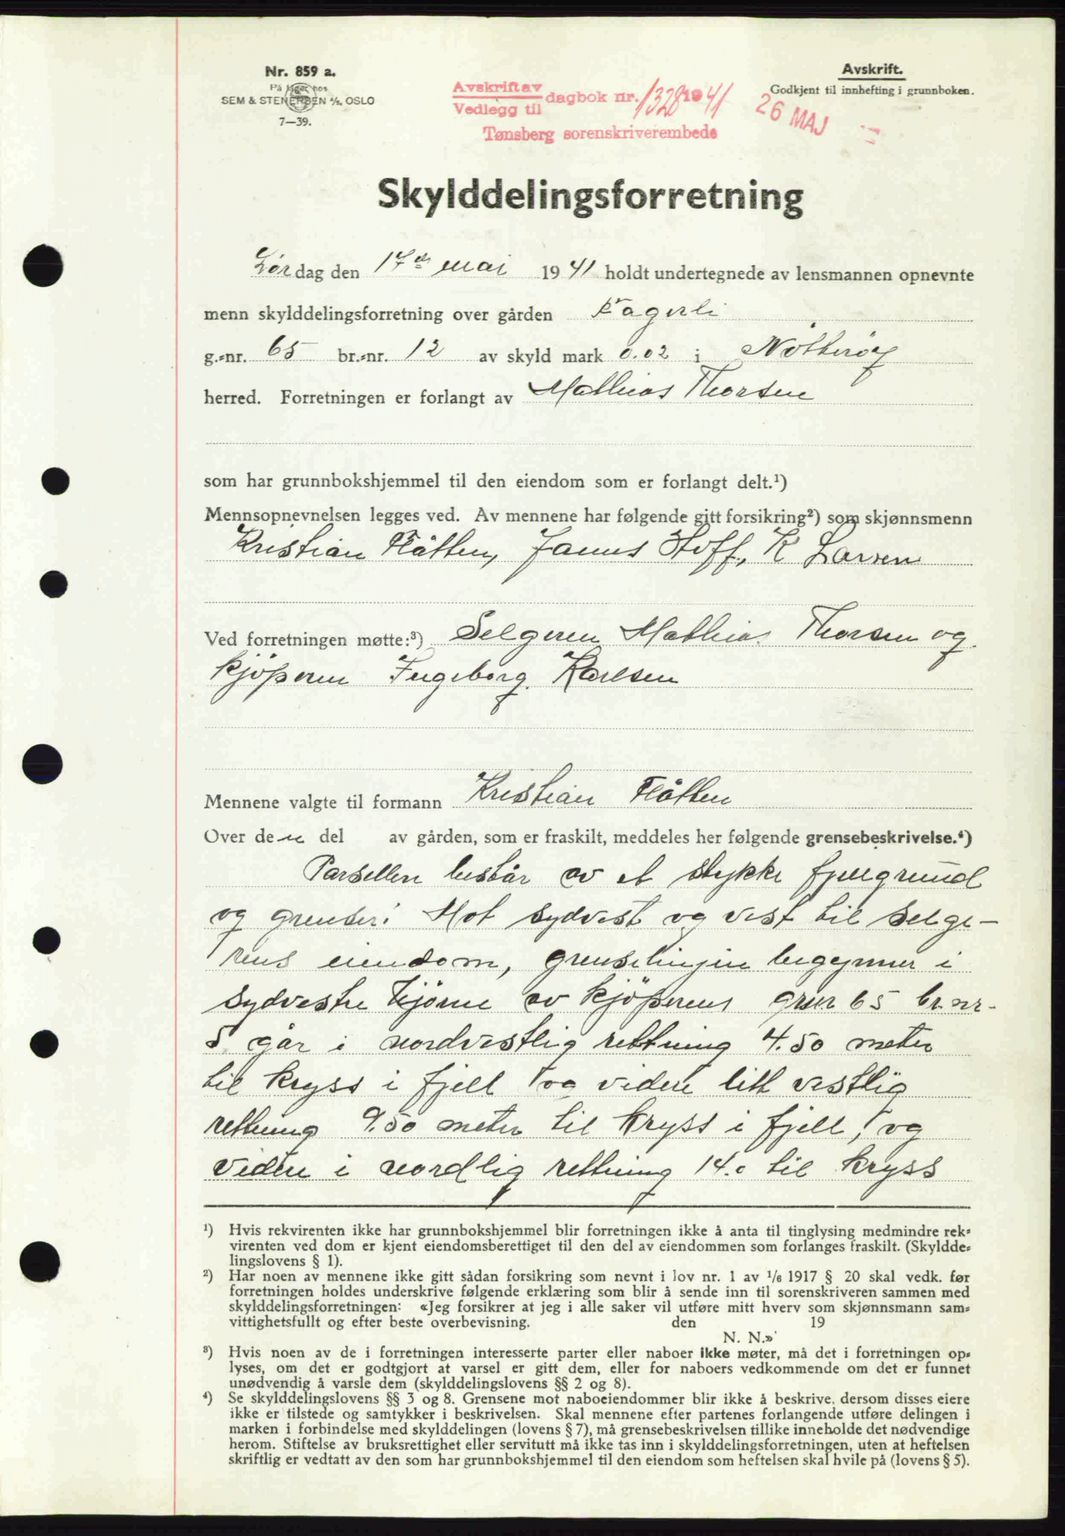 Nr. 859 a.
På lager hos
SEM & STENERSEN A/S. OSLO
7—39.
Avskrift av
Vedlegg til
dagbok nr. 1328 1941
Tønsberg sorenskriverembede
Avskrift.
Godkjent til innhefting i grunnboken.
26 MAJ
Skylddelingsforretning
Lørdag den 17de mai 1941 holdt undertegnede av lensmannen opnevnte
menn skylddelingsforretning over gården Fagerli
g.-nr. 65 br.-nr. 12 av skyld mark 0.02 i Nötterøy
herred. Forretningen er forlangt av Mathias Thorsen
som har grunnbokshjemmel til den eiendom som er forlangt delt.¹)
Mennsopnevnelsen legges ved. Av mennene har følgende gitt forsikring²) som skjønnsmenn
Kristian Flåtten, Hoff, K Larsen
Ved forretningen møtte:³) Selgeren Mathias Thorsen og
kjöperen Ingeborg Karlsen
Mennene valgte til formann Kristian Flåtten
Over den del av gården, som er fraskilt, meddeles her følgende grensebeskrivelse.⁴)
Parsellen består av et stykke fjellgrund
og grenser: Mot sydvest og vest til selge-
rens eiendom, grenselinjen begynner i
sydvestre hjörne av kjöperens gnr 65 br.nr.
5 går i nordvestlig rettning 4.50 meter
til kryss i fjell og videre litt vestlig
rettning 9.50 meter til kryss i fjell, og
videre i nordlig rettning 14.0 til kryss
¹) Hvis rekvirenten ikke har grunnbokshjemmel blir forretningen ikke å anta til tinglysing medmindre rek-
virenten ved dom er kjent eiendomsberettiget til den del av eiendommen som forlanges fraskilt. (Skyldde-
lingslovens § 1).
²) Har noen av mennene ikke gitt sådan forsikring som nevnt i lov nr. 1 av 1/6 1917 § 20 skal vedk. før
forretningen holdes underskrive følgende erklæring som blir å sende inn til sorenskriveren sammen med
skylddelingsforretningen: «Jeg forsikrer at jeg i alle saker vil utføre mitt hverv som skjønnsmann sam-
vittighetsfullt og efter beste overbevisning. den 19
N. N.»
³) Hvis noen av de i forretningen interesserte parter eller naboer ikke møter, må det i forretningen op-
lyses, om det er godtgjort at varsel er gitt dem, eller for naboers vedkommende om det er funnet
unødvendig å varsle dem (skylddelingslovens §§ 2 og 8).
⁴) Se skylddelingslovens §§ 3 og 8. Grensene mot naboeiendommer blir ikke å beskrive, dersom disses eiere
ikke er tilstede og samtykker i beskrivelsen. Skal mennene efter partenes forlangende utføre delingen i
marken i forbindelse med skylddelingen (lovens § 7), må grensebeskrivelsen tillike inneholde det nødvendige
herom. Stiftelse av bruksrettighet eller servitutt må ikke tas inn i skylddelingsforretningen, uten at heftelsen
skriftlig er vedtatt av den som har grunnbokshjemmel til den eiendom som heftelsen skal hvile på (lovens § 5).